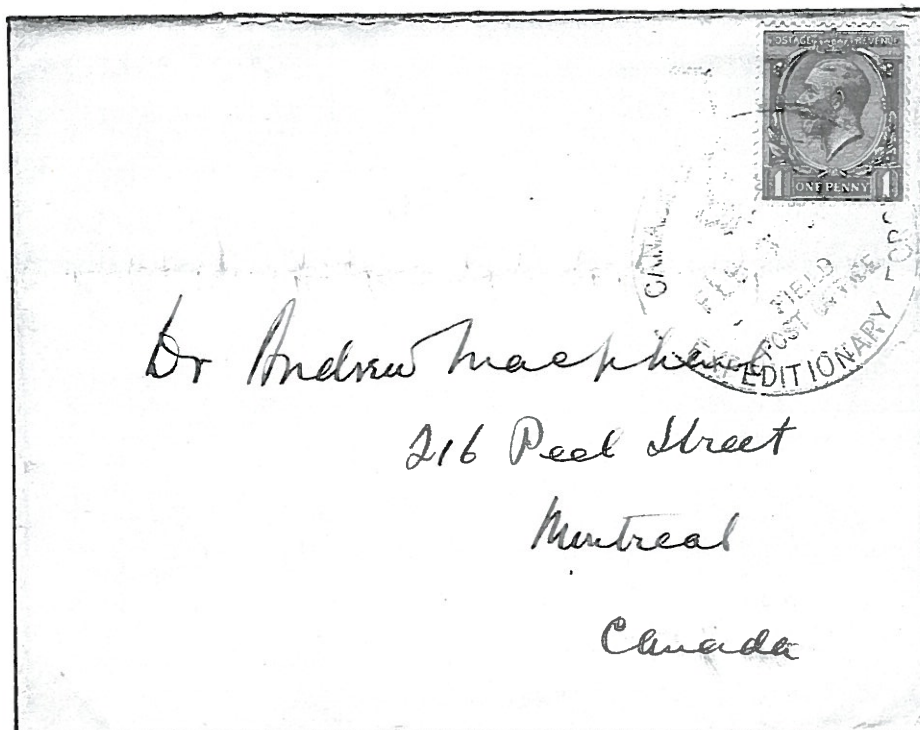 POSTAGE REVENUE
1 ONE PENNY 1
FIELD
POST OFFICE
EXPEDITIONARY
Dr Andrew Macphail
216 Peel Street
Montreal
Canada